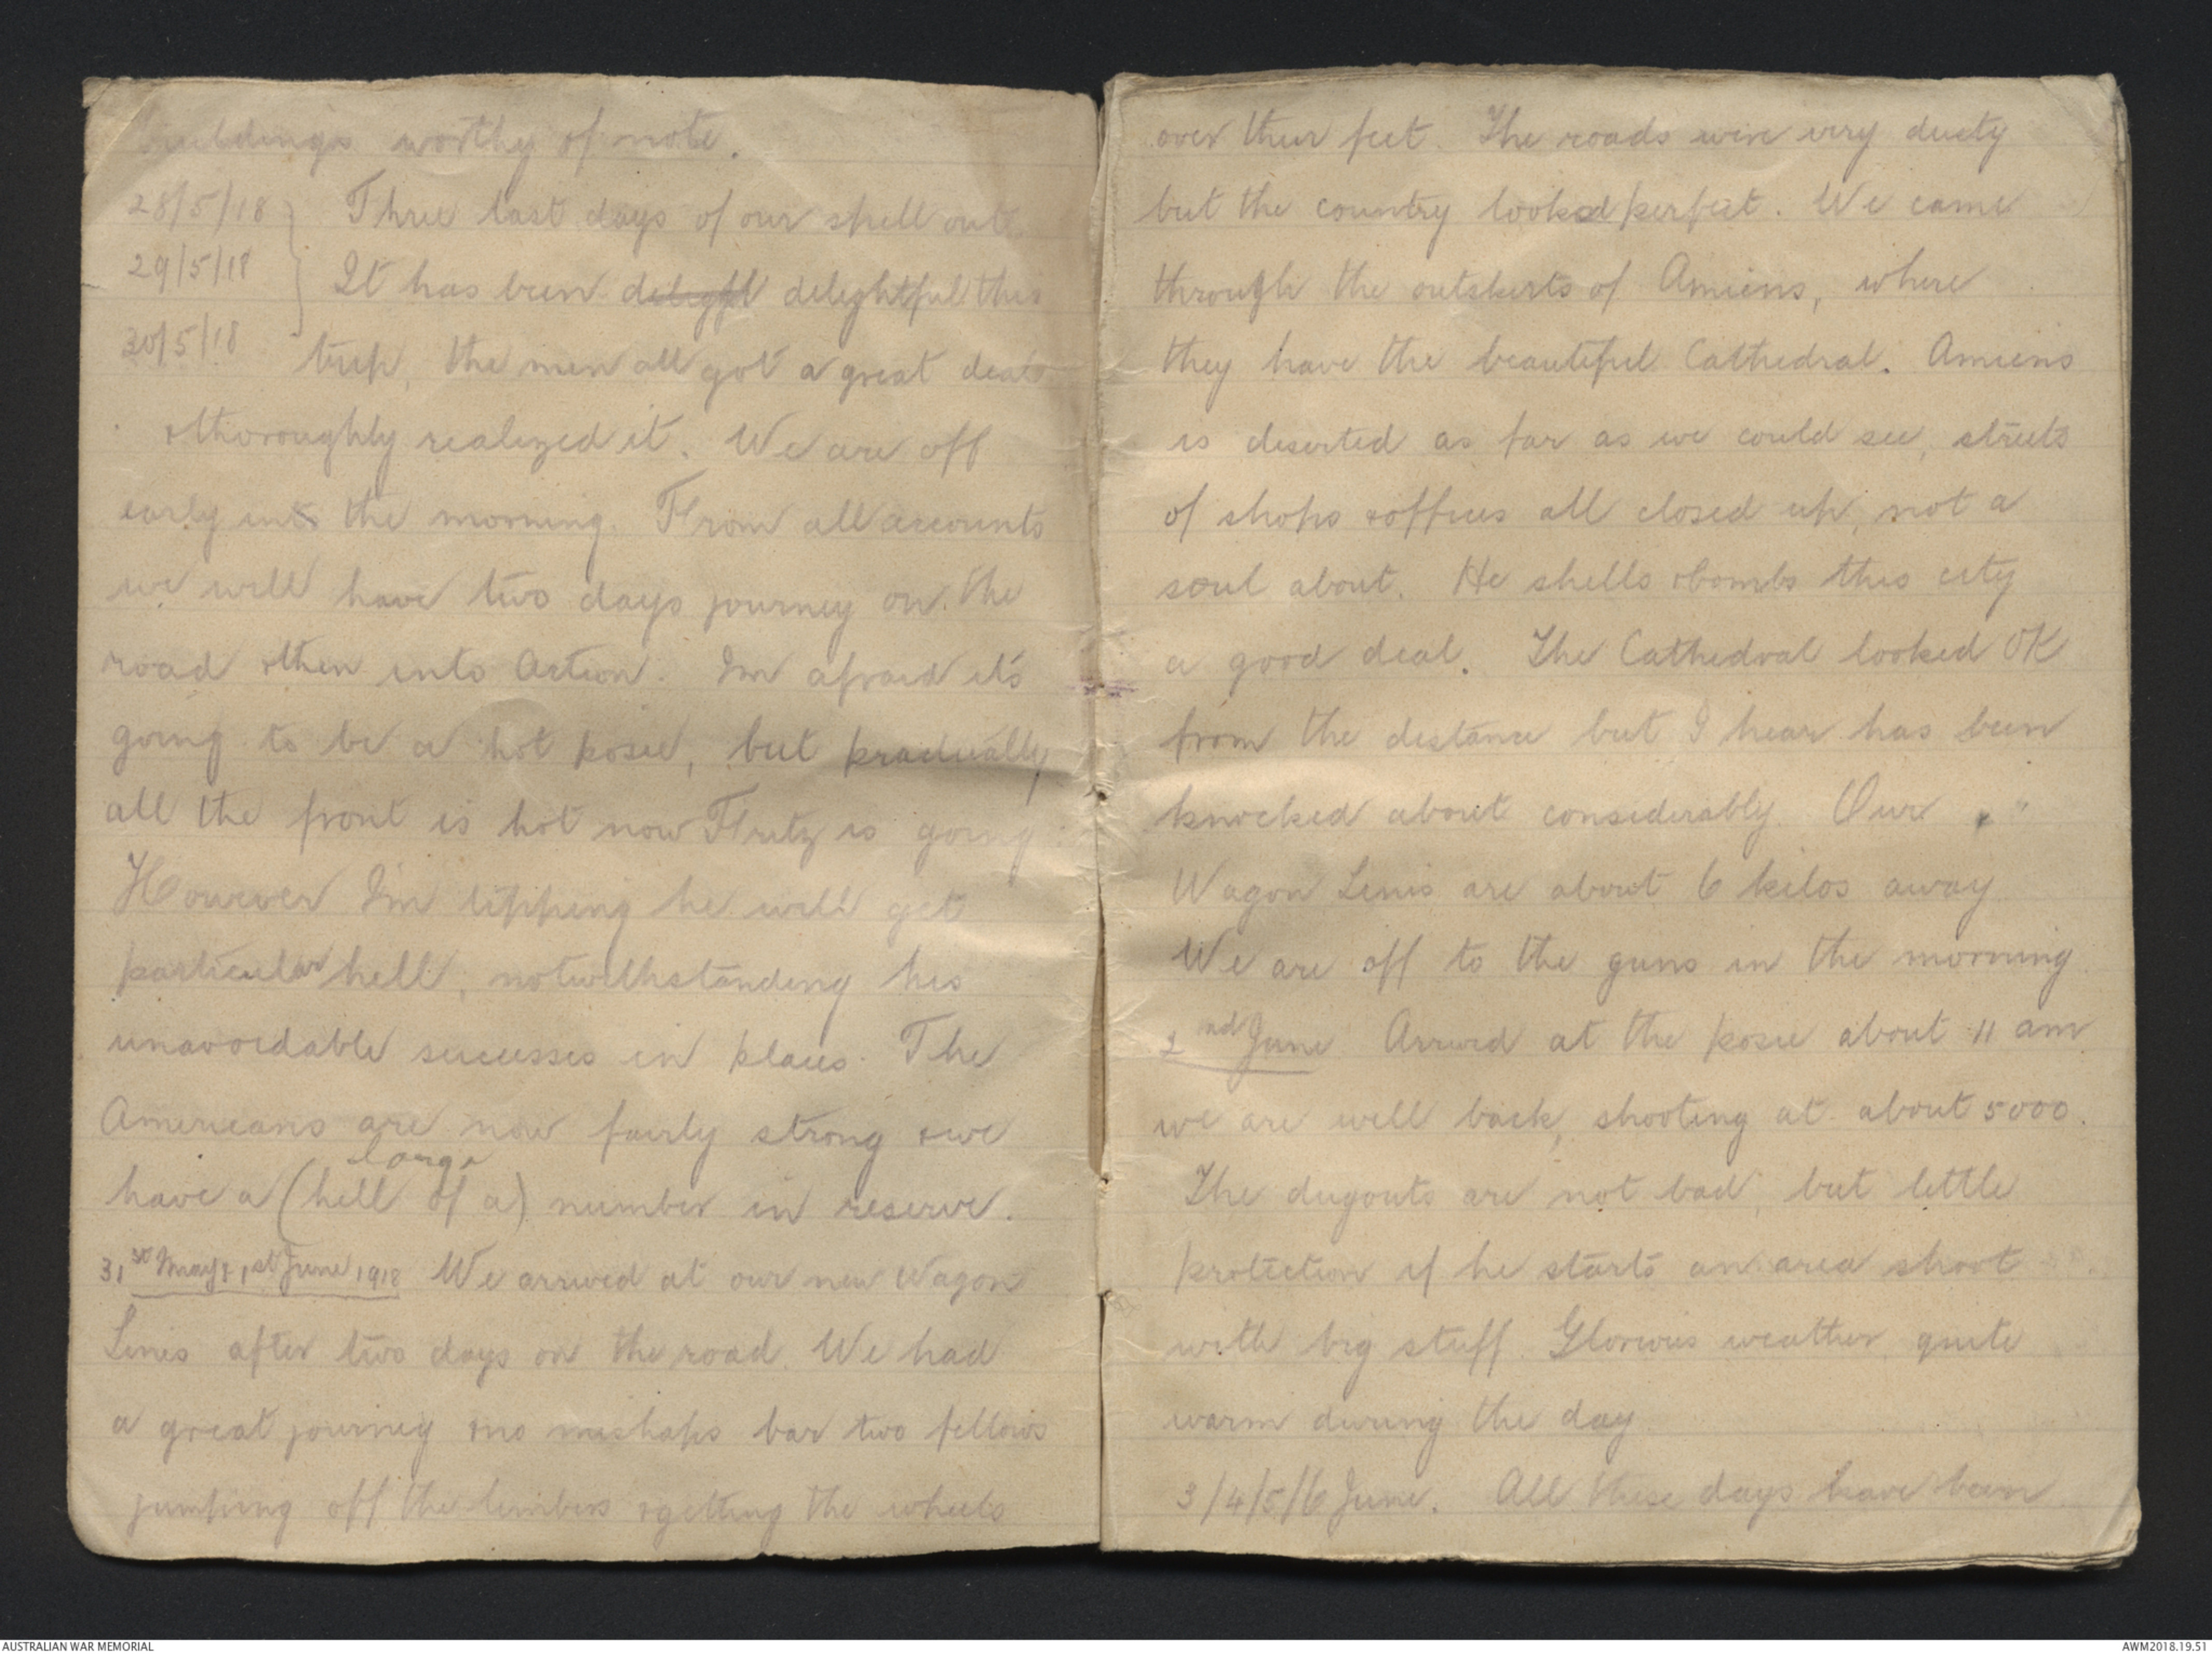 buildings worthy of note.
28/5/18 } Three last days of our spell out.
29/5/18 } It has been delightful this
30/5/18 trip, the men all got a great deal
& thoroughly realized it. We are off
early in the morning. From all accounts
we will have two days journey on the
road & then into Action. I'm afraid it's
going to be a hot posie, but pradually
all the front is hot now Fritz is going
However I'm tipping he will get
particular hell, notwithstanding his
unavoidable successes in places. The
Americans are now fairly strong & we
large
have a (hell of a) number in reserve.
31st May & 1st June 1918 We arrived at our new Wagon
Lines after two days on the road. We had
a great journey & no mishaps bar two fellows
jumping off the limbers & getting the wheels
over their feet. The roads were very dusty
but the country looked perfect. We came
through the outskirts of Amiens, where
they have the beautiful Cathedral. Amiens
is deserted as far as we could see, streets
of shops & offices all closed up, not a
soul about. He shells & bombs this city
a good deal. The Cathedral looked OK
from the distance but I hear has been
knocked about considerably. Our
Wagon Lines are about 6 kilos away
We are off to the guns in the morning
2nd June Arrived at the posie about 11 am
we are well back, shooting at about 5000.
The dugouts are not bad, but little
protection if he starts an area shoot
with big stuff. Glorious weather quite
warm during the day
3/4/5/6 June. All these days have been
AUSTRALIAN WAR MEMORIAL
AWM2018.19.51